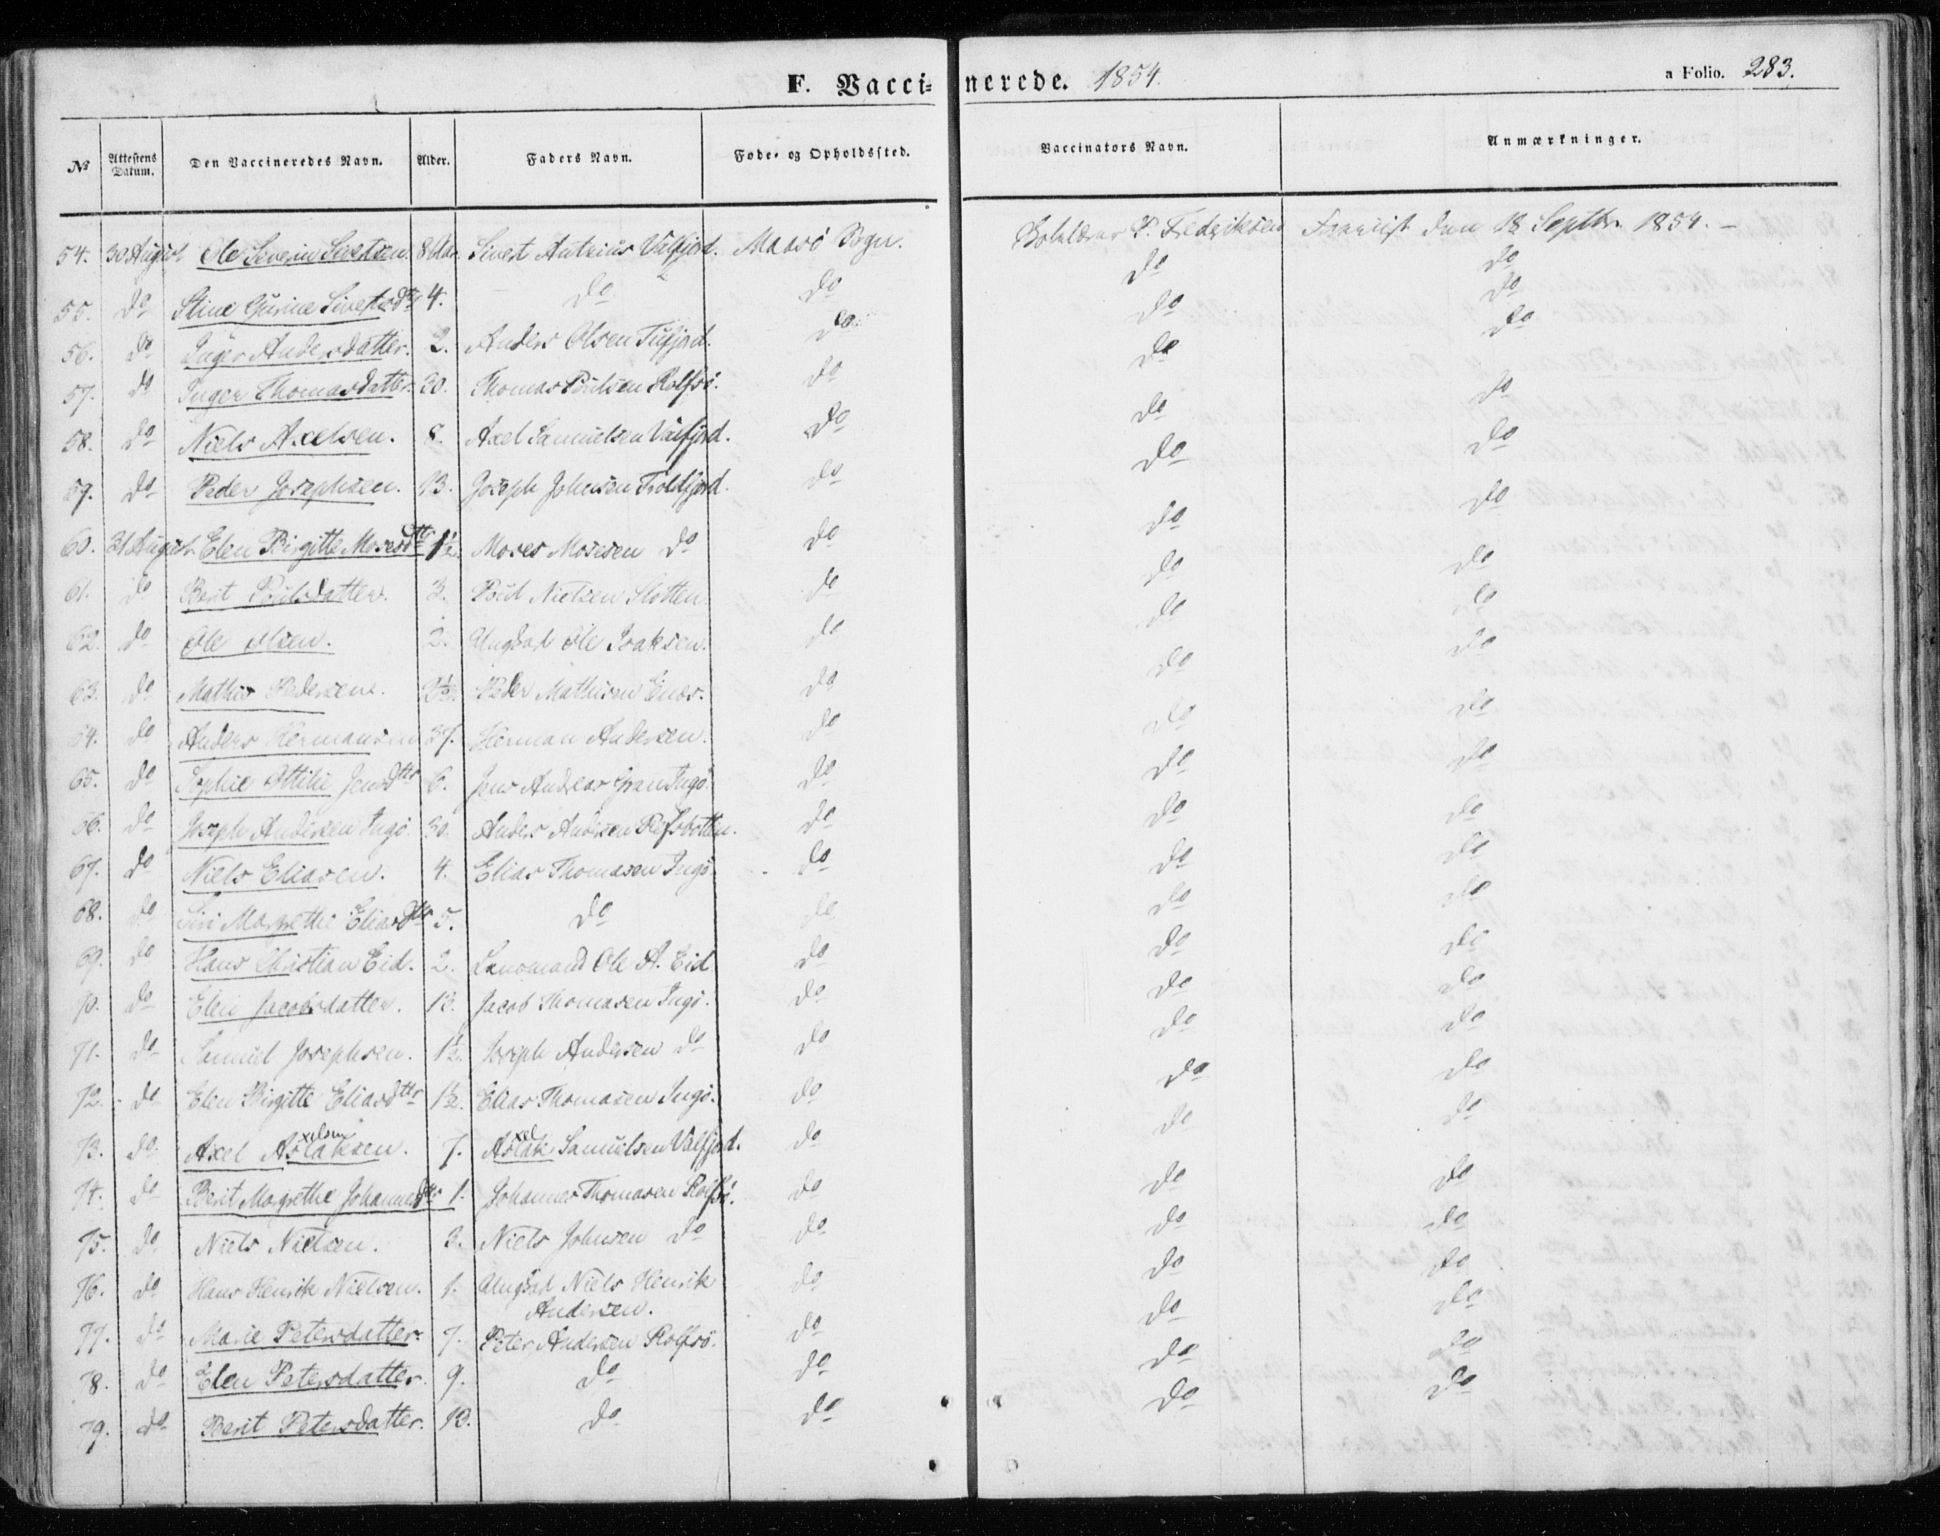 F. Vaccinerede. 1854. a Folio. 283.
No Attestens Datum. Den Vaccineredes Navn. Alder. Faders Navn. Føde- og Opholdssted. Vaccinators Navn. Anmærkninger.
54. 30 August Ole Severin Sivertsen. 8 Aar. Sivert Antonius Valfjord. Maasö Sogn. P. Frederiksen den 18 Septbr. 1854. –
55. do Stine Gurine Sivertsdtr 4. do do do do
56. do Inger Andersdatter. 2. Anders Olsen Tufjord. do do do
57. do Inger Thomasdatter. 20. Thomas Poulsen Rolfsö. do do do
58. do Niels Axelsen. 8. Axel Samuelsen Valfjord. do do do
59. do Peder Josephsen. 13. Joseph Johnsen Troldfjord. do do do
60. 31 August Elen Birgitte Mosesdtr 1½ Moses Mosesen do do do do
61. do Berit Poulsdatter. 3. Poul Nielsen Slotten. do do do
62. do Ole Olsen. 2. Ungkarl Ole Isaksen. do do do
63. do Mathis Pedersen. 2½. Peder Mathisen do do do
64. do Anders Hermansen 37. Herman Andersen. do do do
65. do Sophie Ottilie Jensdtr 6. Jens Andreas Ingö. do do do
66. do Joseph Andersen Ingö. 30. Anders Andersen Refsbotten. do do do
67. do Niels Eliasen. 4. Elias Thomasen Ingö. do do do
68. do Siri Margrethe Eliasdtr 5. do do do do
69. do Hans Christian Eid. 2. Lensmand Ole A. Eid do do do
70. do Elen Jacobsdatter. 13. Jacob Thomasen Ingö. do do do
71. do Samuel Josephsen. 1½. Joseph Andersen do do do do
72. do Elen Birgitte Eliasdtr 1½. Elias Thomasen Ingö. do do do
73. do Axel Aslaksen. xelsen 7. Aslak xel Samuelsen Valfjord. do do do
74. do Berit Margrethe Johannesdtr 1. Johannes Thomasen Rolfsö. do do do
75. do Niels Nielsen. 3. Niels Johnsen do do do do
76. do Hans Henrik Nielsen. 1. Ungkarl Niels Henrik Andersen. do do do
77. do Marie Petersdatter. 7. Peter Andersen Rolfsö. do do do
78. do Elen Petersdatter. 9. do do do do
79. do Berit Petersdatter. 13. do do do do